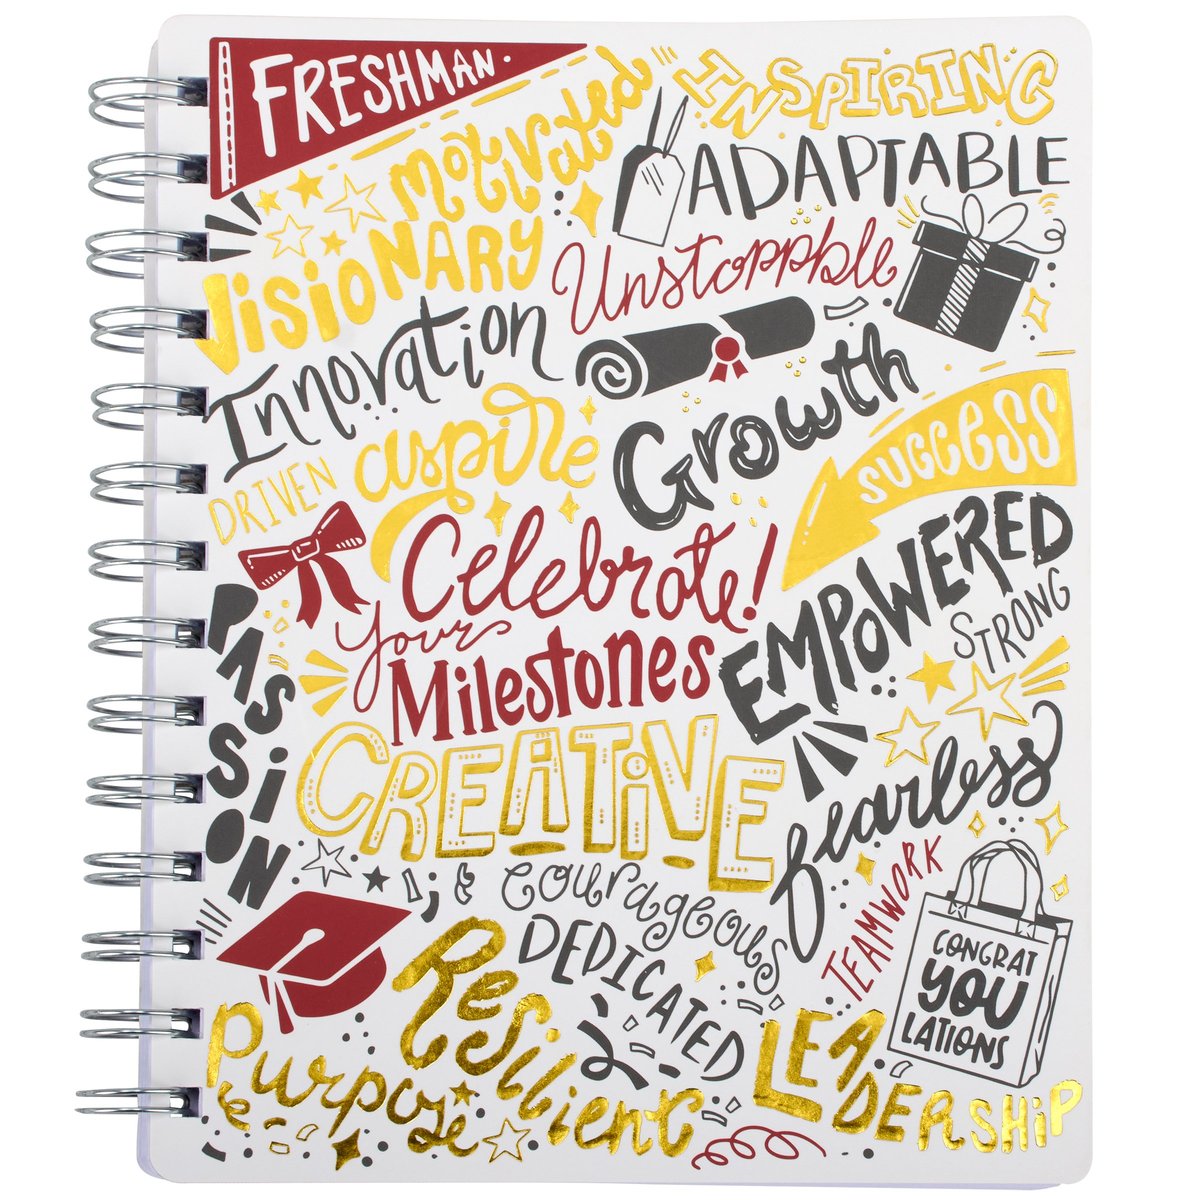 FRESHMAN
motivated
INSPIRING
ADAPTABLE
VISIONARY
Unstoppable
Innovation
Growth
aspire
SUCCESS
DRIVEN
Celebrate!
your
Milestones
EMPOWERED
STRONG
PASSION
CREATIVE
fearless
courageous
TEAMWORK
DEDICATED
CONGRAT
YOU
LATIONS
Resilient
Purpose
LEADERSHIP